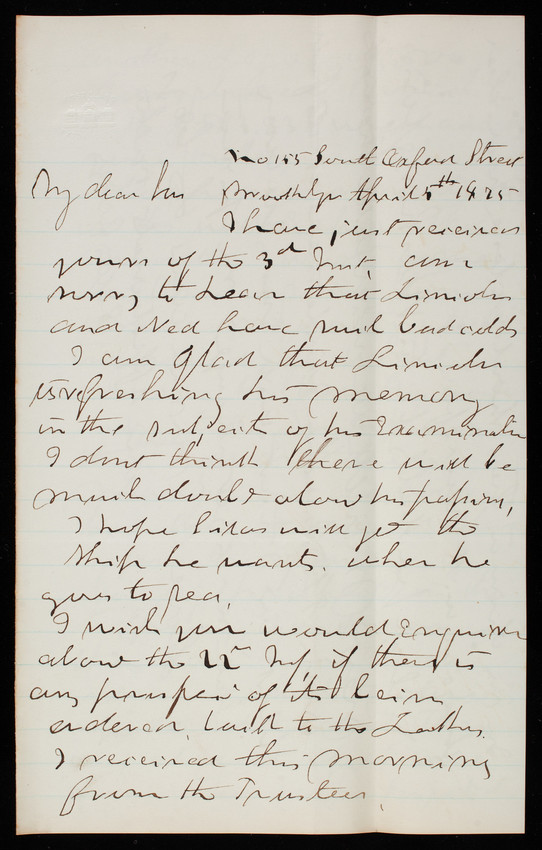 No 155 South Oxford Street
My dear Sir Brooklyn April 5th 1875
I have just received
yours of the 3d Inst, am
sorry to hear that Lincoln
and Ned have such bad colds
I am glad that Lincoln
is refreshing his memory
in the subject of his Examination
I dont think there will be
much doubt about his passing,
I hope will get the
ship he wants. when he
goes to sea,
I wish you would Enquire
about the 22 Inf if there is
any prospect of its being
ordered, to the
I received this morning
from the Trustees,